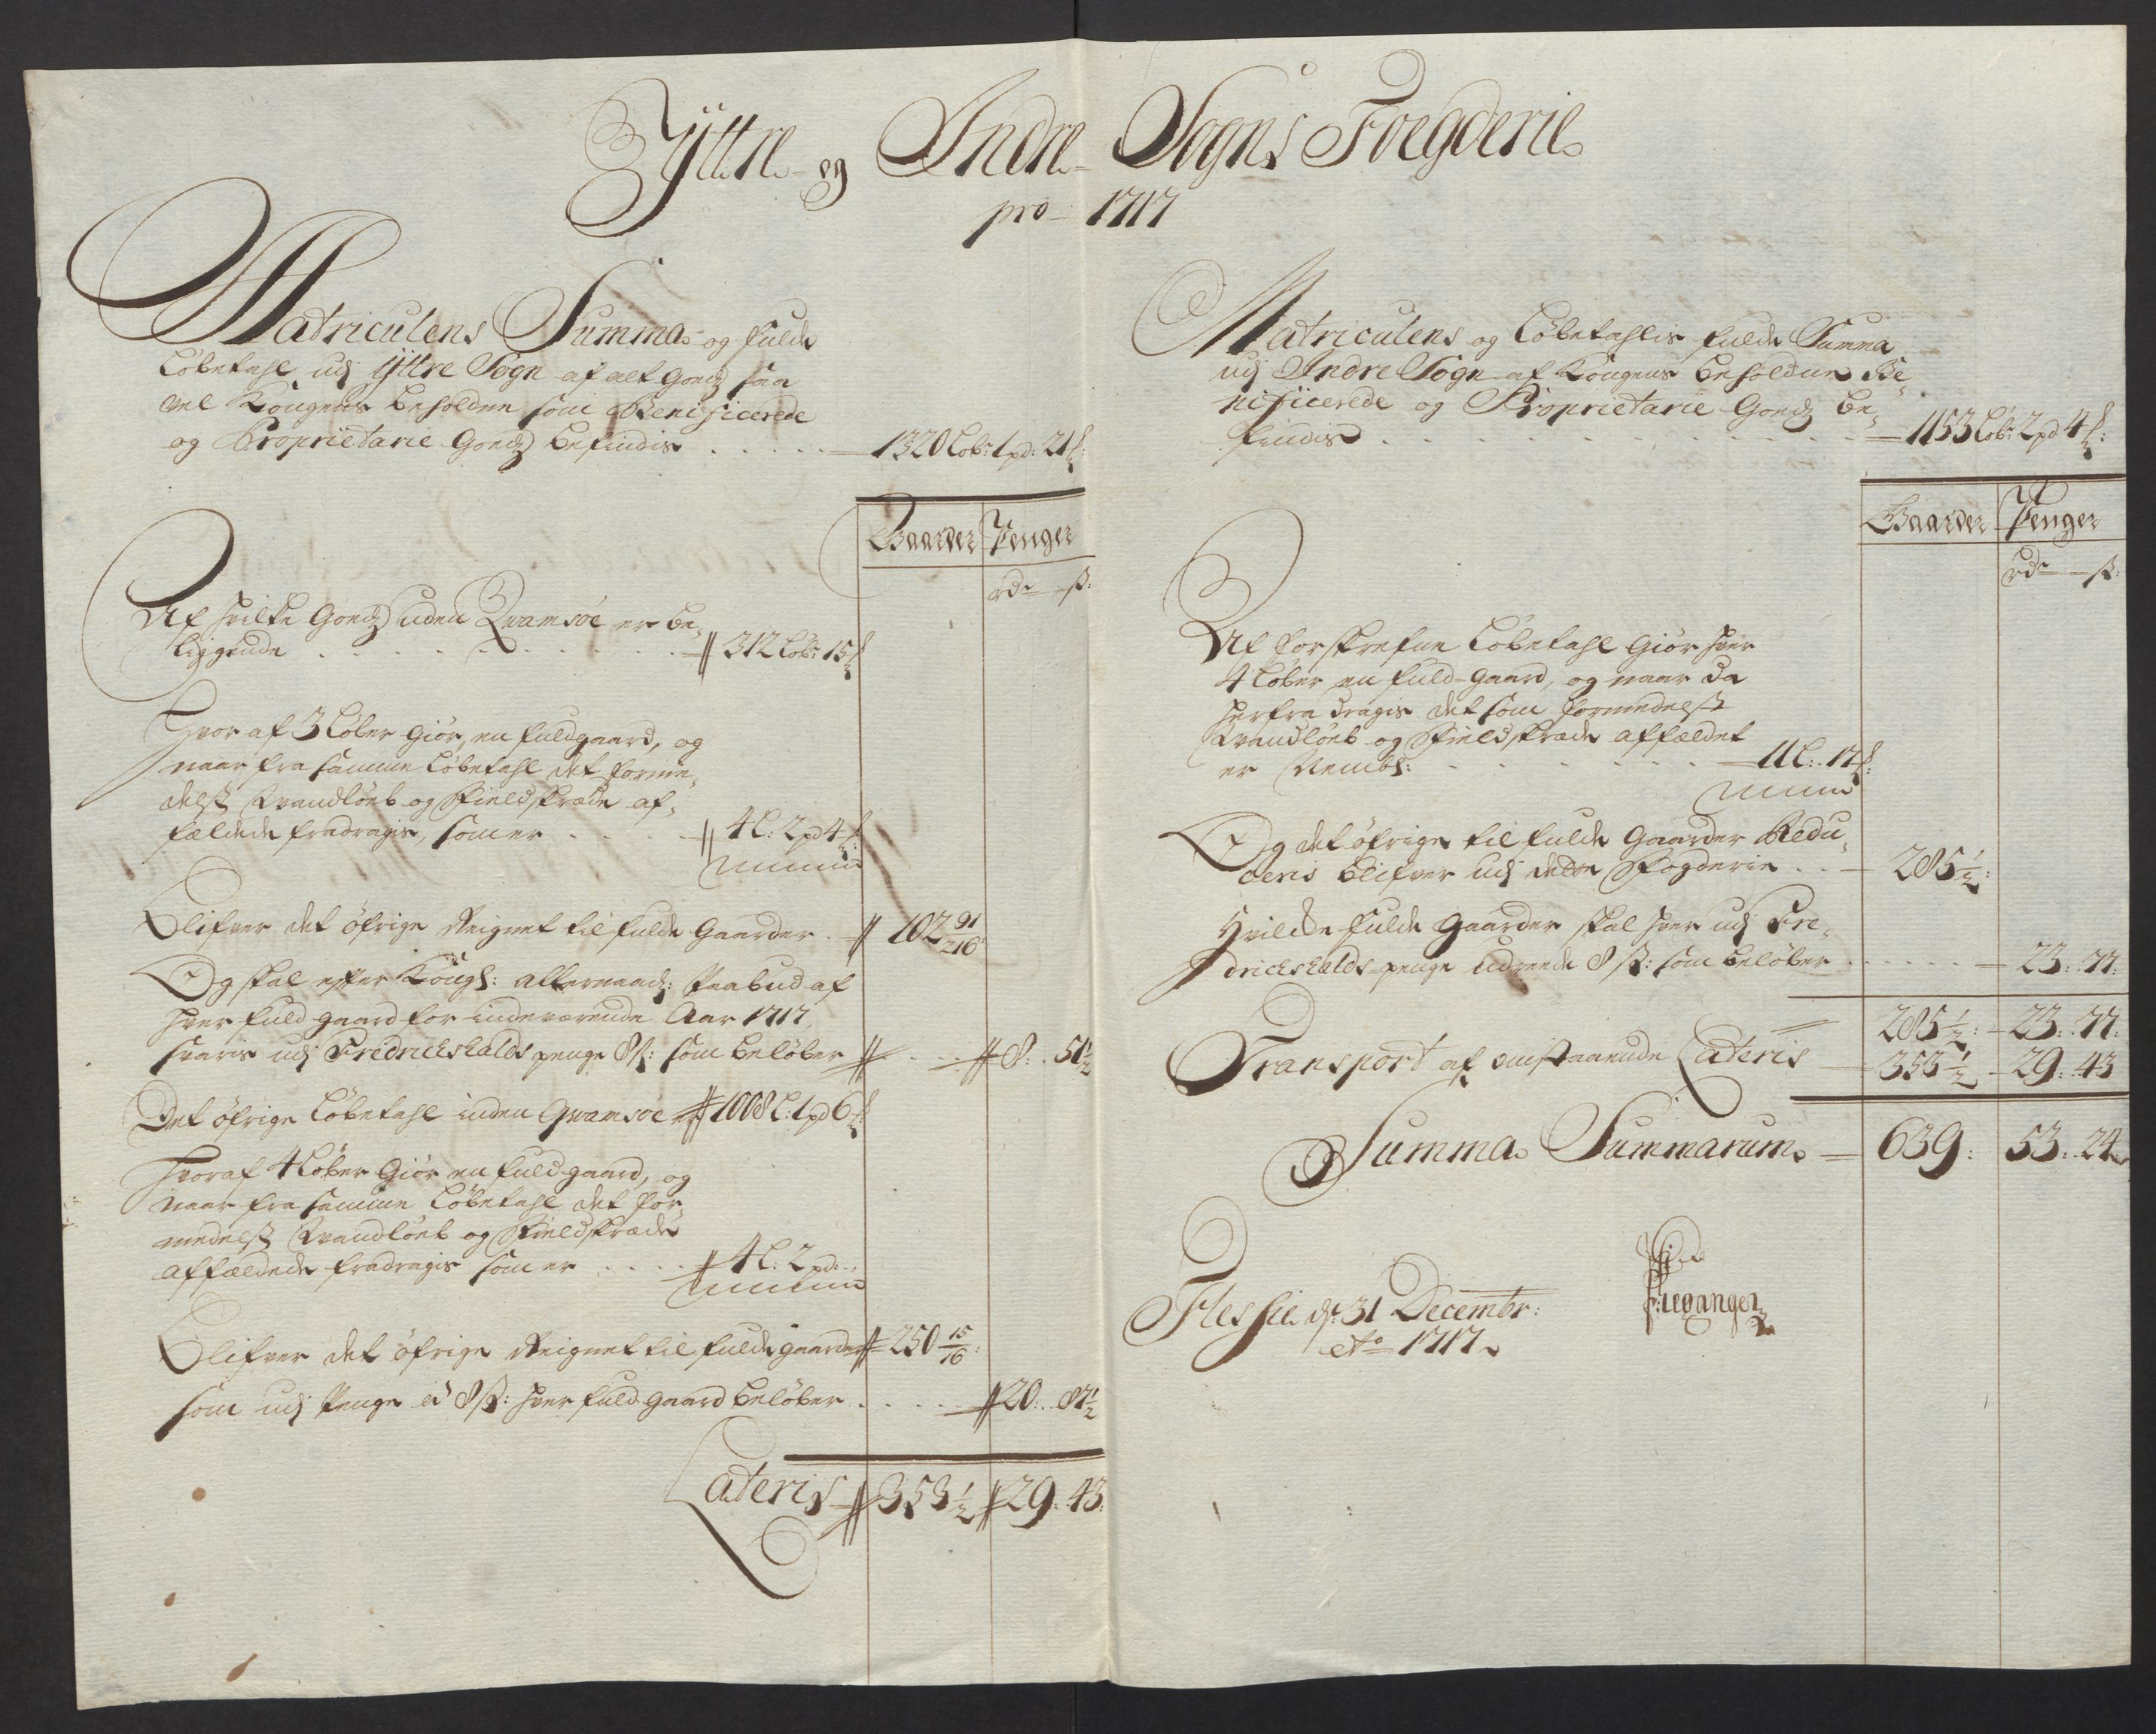 Ÿttre og Indre Sogns Foegderie
pro 1717
Matriculens Summa og fulde
Løbetahl udj ÿttre Sogn af alt Goedz saa
vel Kongens beholdne som Benificerede
og Proprietarie Goedz befindis . . . . . 1320 Løb: 1 pd: 21
Gaarder Penger
rdr ß:
Af hvilke Goedz uden Qvamsøe er be,
liggende . . . . . . . . . 312 Løb: 15
Hvor af 3 Løber giør en fuldgaard, og
naar fra samme Løbetahl det forme,
delst Vandløeb og Fieldskrede af,
fældede fradragis, som er . . . . 4 L: 2 pd 4
Blifver det øfrige Reignet til fulde Gaarder . 102 91/216
Og skal efter Kongl: allernaad: Paabud af
hver fuld gaard for indeværende Aar 1717
svaris udj Fredrichshalds penge 8 ß: som beløber . . 8: 51½
Det øfrige Løbetahl inden Qvamsøe er 1008 L: 1 pd 6
Hvoraf 4 Løber Giør en fuld gaard, og
naar fra samme Løbetahl det for,
medelst Vandløeb og Fieldskrede
affældede fradragis som er . . . . 4 L: 2 pd:
Blifver det øfrige Reignet til fulde gaarder 250 15/16:
som udj Penge à 8 ß: hver fuld gaard beløber . . . . 20: 87½
Lateris 353½ 29: 43:
Matriculens og Løbetahlis fulde Summa
udj Indre Sogn af Kongens beholdne Be,
nificerede og Proprietarie Goedz be,
findis . . . . . . . . . . 1153 Løb: 2 pd 4
Gaarder Penger
rdr ß:
Af forskrefne Løbetahl Giør hver
4 Løber en fuld gaard, og naar da
herfra dragis det som formedelst
Vandløeb og Fieldskrede affældet
er Nembl: . . . . . . . 11 L: 17
Og det øfrige til fulde Gaarder Redu,
ceris blifver udj dette Fogderie . . 285½:
Hvilcke fulde gaarder skal hver udj Fre,
drichshalds penge udreede 8 ß: som beløber . . . . . 23: 77:
285½: 23: 77:
Transport af omstaaende Lateris 353½ 29: 43
Summa Summarum 639: 53: 24
d: 31 Decembr:
Ao 1717